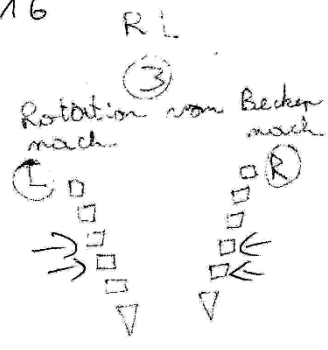 16
R L
3
Rotation vom Becken
nach nach
L R